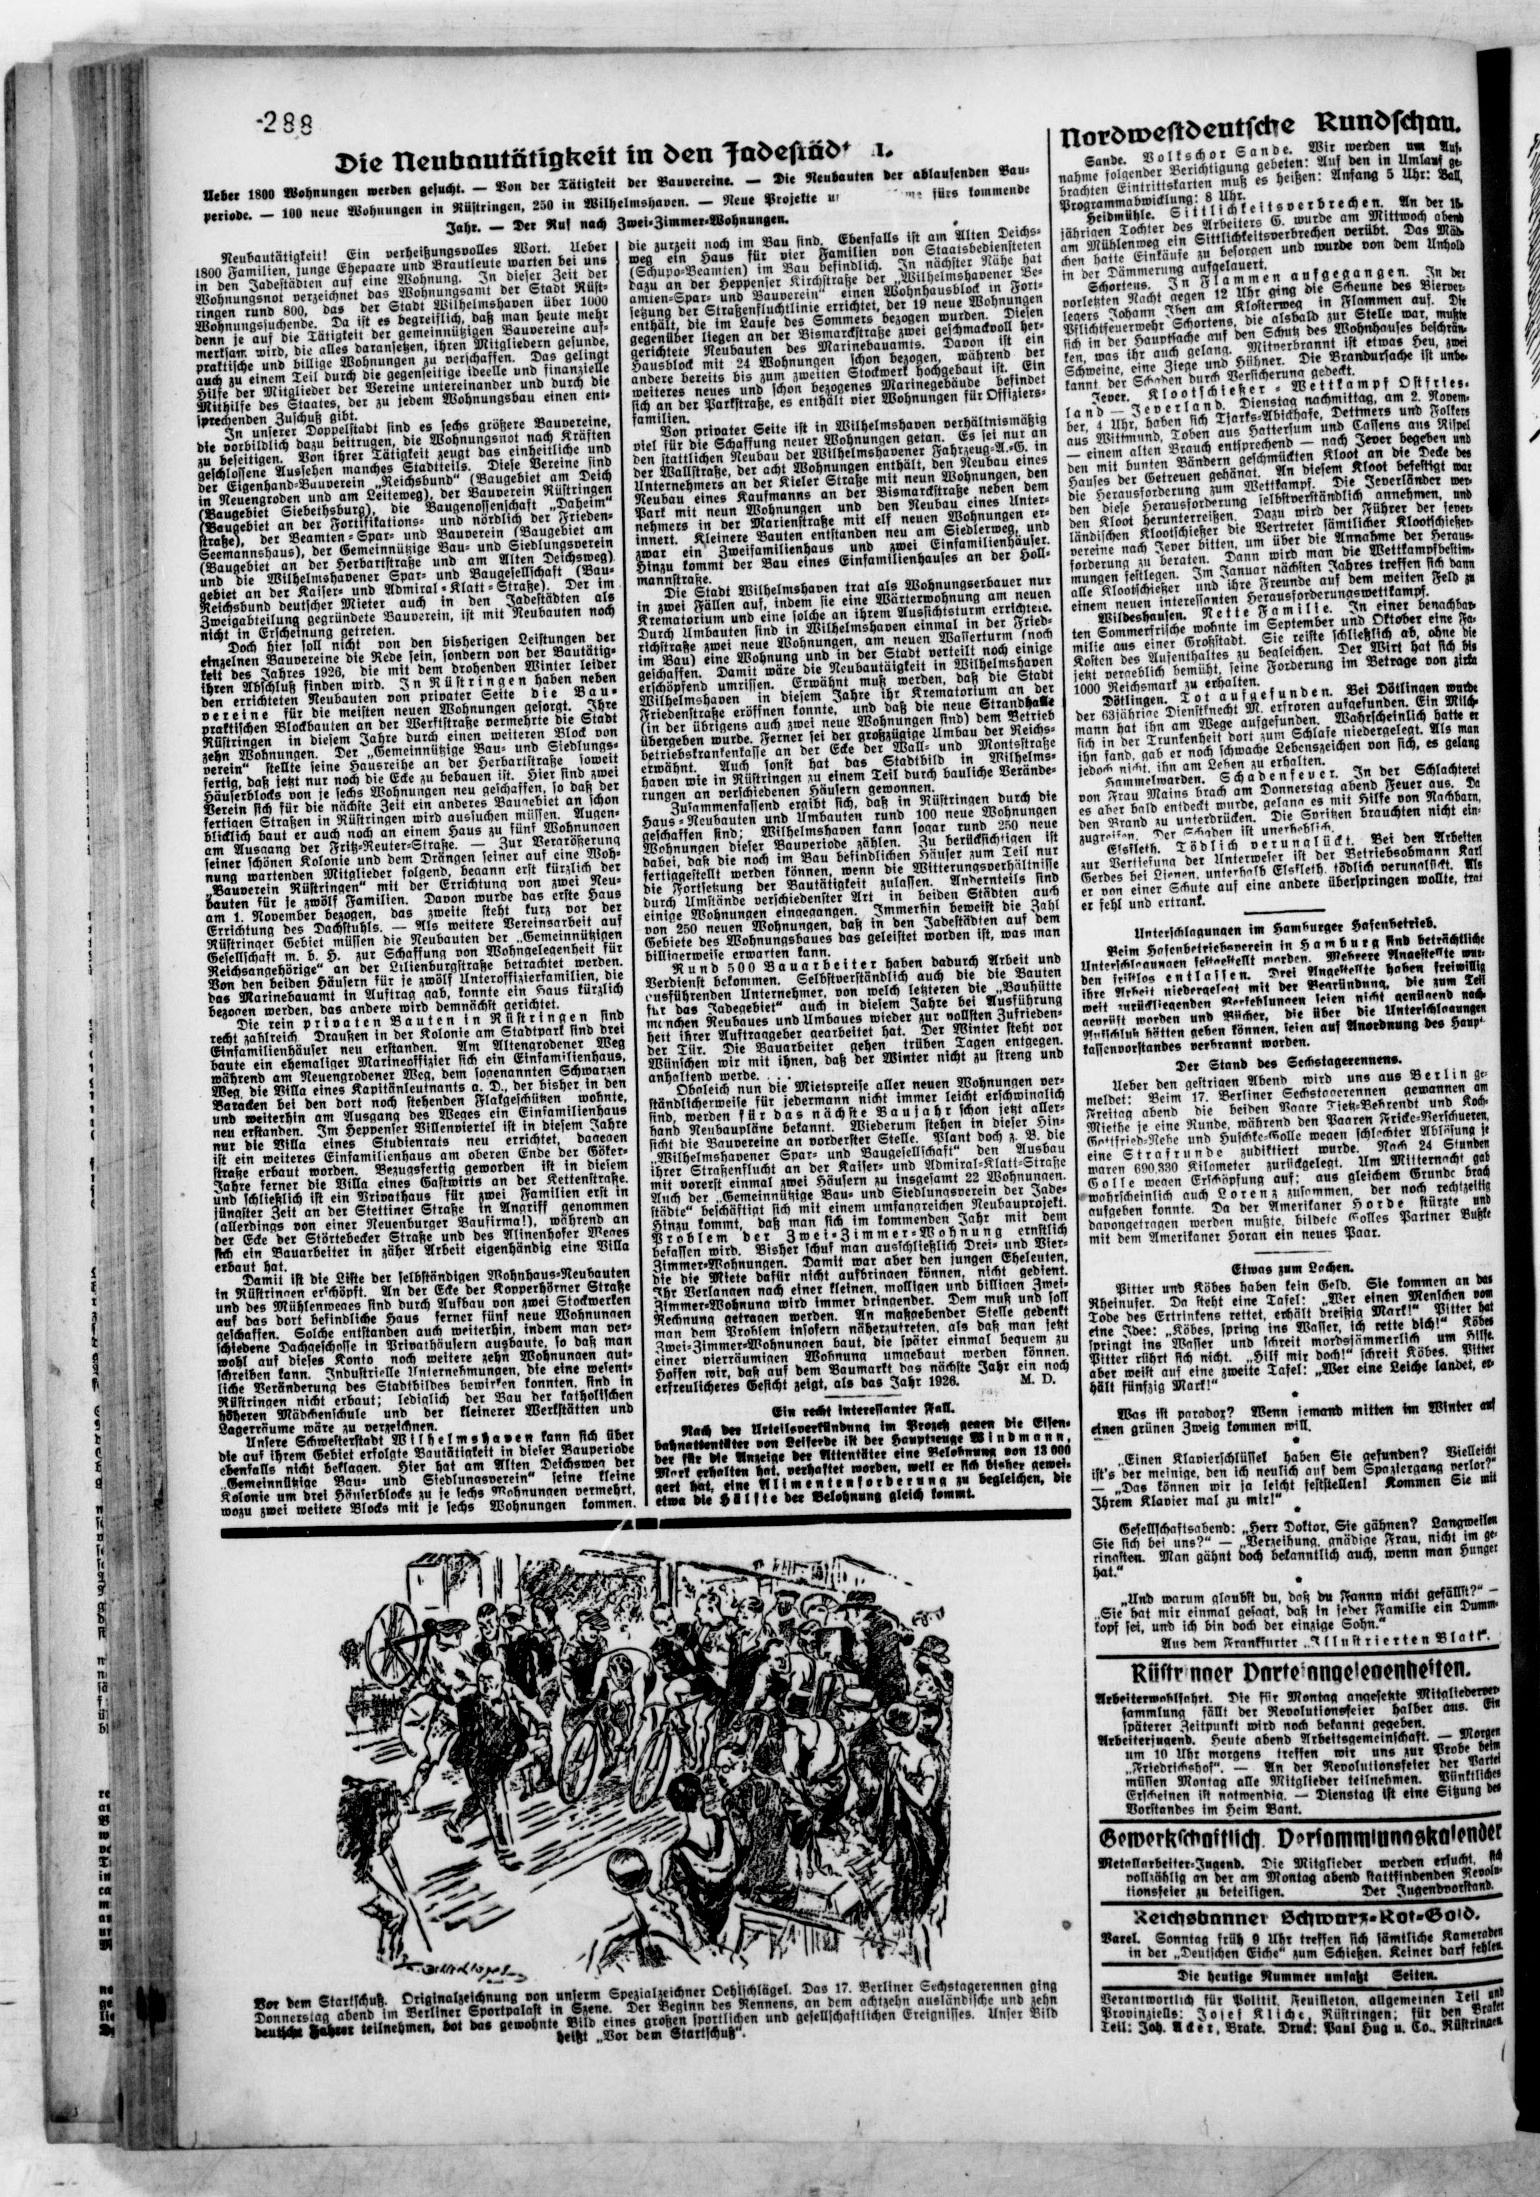 288
Die Neubautätigkeit in den Jadestäd
Ueber 1800 Wohnungen werden gesucht. — Von der Tätigkeit der Bauvereine. — Die Neubauten der ablaufenden Bau-
periode. — 100 neue Wohnungen in Rüstringen, 250 in Wilhelmshaven. — Neue Projekte fürs kommende
Jahr. — Der Ruf nach Zwei-Zimmer-Wohnungen.
Neubautätigkeit! Ein verheißungsvolles Wort. Ueber
1800 Familien, junge Ehepaare und Brautleute warten bei uns
in den Jadestädten auf eine Wohnung. In dieser Zeit der
Wohnungsnot verzeichnet das Wohnungsamt der Stadt Rüst-
ringen rund 800, das der Stadt Wilhelmshaven über 1000
Wohnungsuchende. Da ist es begreiflich, daß man heute mehr
denn je auf die Tätigkeit der gemeinnützigen Bauvereine auf-
merksam wird, die alles daransetzen, ihren Mitgliedern gesunde,
praktische und billige Wohnungen zu verschaffen. Das gelingt
auch zu einem Teil durch die gegenseitige ideelle und finanzielle
Hilfe der Mitglieder der Vereine untereinander und durch die
Mithilfe des Staates, der zu jedem Wohnungsbau einen ent-
sprechenden Zuschuß gibt.
In unserer Doppelstadt sind es sechs größere Bauvereine,
die vorbildlich dazu beitrugen, die Wohnungsnot nach Kräften
zu beseitigen. Von ihrer Tätigkeit zeugt das einheitliche und
geschlossene Aussehen manches Stadtteils. Diese Vereine sind
der Eigenhand-Bauverein „Reichsbund“ (Baugebiet am Deich
in Neuengroden und am Leiteweg), der Bauverein Rüstringen
(Baugebiet Siebethsburg), die Baugenossenschaft „Daheim“
(Baugebiet an der Fortifikations- und nördlich der Frieden-
straße), der Beamten-Spar- und Bauverein (Baugebiet am
Seemannshaus), der Gemeinnützige Bau- und Siedlungsverein
(Baugebiet an der Herbartstraße und am Alten Deichsweg)
und die Wilhelmshavener Spar- und Baugesellschaft (Bau-
gebiet an der Kaiser- und Admiral-Klatt-Straße). Der im
Reichsbund deutscher Mieter auch in den Jadestädten als
Zweigabteilung gegründete Bauverein, ist mit Neubauten noch
nicht in Erscheinung getreten.
Doch hier soll nicht von den bisherigen Leistungen der
einzelnen Bauvereine die Rede sein, sondern von der Bautätig-
keit des Jahres 1926, die mit dem drohenden Winter leider
ihren Abschluß finden wird. In Rüstringen haben neben
den errichteten Neubauten von privater Seite die Bau-
vereine für die meisten neuen Wohnungen gesorgt. Ihre
praktischen Blockbauten an der Werftstraße vermehrte die Stadt
Rüstringen in diesem Jahre durch einen weiteren Block von
zehn Wohnungen. Der „Gemeinnützige Bau- und Siedlungs-
verein“ stellte seine Hausreihe an der Herbartstraße soweit
fertig, daß jetzt nur noch die Ecke zu bebauen ist. Hier sind zwei
Häuserblocks von je sechs Wohnungen neu geschaffen, so daß der
Verein sich für die nächste Zeit ein anderes Baugebiet an schon
fertigen Straßen in Rüstringen wird aussuchen müssen. Augen-
blicklich baut er auch noch an einem Haus zu fünf Wohnungen
am Ausgang der Fritz-Reuter-Straße. — Zur Vergrößerung
seiner schönen Kolonie und dem Drängen seiner auf eine Woh-
nung wartenden Mitglieder folgend, begann erst kürzlich der
„Bauverein Rüstringen“ mit der Errichtung von zwei Neu-
bauten für je zwölf Familien. Davon wurde das erste Haus
am 1. November bezogen, das zweite steht kurz vor der
Errichtung des Dachstuhls. — Als weitere Vereinsarbeit auf
Rüstringer Gebiet müssen die Neubauten der „Gemeinnützigen
Gesellschaft m. b. H. zur Schaffung von Wohngelegenheit für
Reichsangehörige“ an der Lilienburgstraße betrachtet werden.
Von den beiden Häusern für je zwölf Unteroffizierfamilien, die
das Marinebauamt in Auftrag gab, konnte ein Haus kürzlich
bezogen werden, das andere wird demnächst gerichtet.
Die rein privaten Bauten in Rüstringen sind
recht zahlreich. Draußen in der Kolonie am Stadtpark sind drei
Einfamilienhäuser neu erstanden. Am Altengrodener Weg
baute ein ehemaliger Marineoffizier sich ein Einfamilienhaus,
während am Neuengrodener Weg, dem sogenannten Schwarzen
Weg, die Villa eines Kapitänleutnants a. D., der bisher in den
Baracken bei den dort noch stehenden Flakgeschützen wohnte,
und weiterhin am Ausgang des Weges ein Einfamilienhaus
neu erstanden. Im Heppenser Villenviertel ist in diesem Jahre
nur die Villa eines Studienrats neu errichtet, dagegen
ist ein weiteres Einfamilienhaus am oberen Ende der Göker-
straße erbaut worden. Bezugsfertig geworden ist in diesem
Jahre ferner die Villa eines Gastwirts an der Kettenstraße,
und schließlich ist ein Privathaus für zwei Familien erst in
jüngster Zeit an der Stettiner Straße in Angriff genommen
(allerdings von einer Neuenburger Baufirma!), während an
der Ecke der Störtebecker Straße und des Alinenhofer Weges
sich ein Bauarbeiter in zäher Arbeit eigenhändig eine Villa
erbaut hat.
Damit ist die Liste der selbständigen Wohnhaus-Neubauten
in Rüstringen erschöpft. An der Ecke der Kopperhörner Straße
und des Mühlenweges sind durch Aufbau von zwei Stockwerken
auf das dort befindliche Haus ferner fünf neue Wohnungen
geschaffen. Solche entstanden auch weiterhin, indem man ver-
schiedene Dachgeschosse in Privathäusern ausbaute, so daß man
wohl auf dieses Konto noch weitere zehn Wohnungen gut-
schreiben kann. Industrielle Unternehmungen, die eine wesent-
liche Veränderung des Stadtbildes bewirken konnten, sind in
Rüstringen nicht erbaut; lediglich der Bau der katholischen
höheren Mädchenschule und der kleinerer Werkstätten und
Lagerräume wäre zu verzeichnen.
Unsere Schwesterstadt Wilhelmshaven kann sich über
die auf ihrem Gebiet erfolgte Bautätigkeit in dieser Bauperiode
ebenfalls nicht beklagen. Hier hat am Alten Deichsweg der
„Gemeinnützige Bau- und Siedlungsverein“ seine kleine
Kolonie um drei Häuserblocks zu je sechs Wohnungen vermehrt,
wozu zwei weitere Blocks mit je sechs Wohnungen kommen,
die zurzeit noch im Bau sind. Ebenfalls ist am Alten Deichs-
weg ein Haus für vier Familien von Staatsbediensteten
(Schupo-Beamten) im Bau befindlich. In nächster Nähe hat
dazu an der Heppenser Kirchstraße der „Wilhelmshavener Be-
amten-Spar- und Bauverein“ einen Wohnhausblock in Fort-
setzung der Straßenfluchtlinie errichtet, der 19 neue Wohnungen
enthält, die im Laufe des Sommers bezogen wurden. Diesen
gegenüber liegen an der Bismarckstraße zwei geschmackvoll her-
gerichtete Neubauten des Marinebauamts. Davon ist ein
Hausblock mit 24 Wohnungen schon bezogen, während der
andere bereits bis zum zweiten Stockwerk hochgebaut ist. Ein
weiteres neues und schon bezogenes Marinegebäude befindet
sich an der Parkstraße, es enthält vier Wohnungen für Offiziers-
familien.
Von privater Seite ist in Wilhelmshaven verhältnismäßig
viel für die Schaffung neuer Wohnungen getan. Es sei nur an
den stattlichen Neubau der Wilhelmshavener Fahrzeug-A.-G. in
der Wallstraße, der acht Wohnungen enthält, den Neubau eines
Unternehmers an der Kieler Straße mit neun Wohnungen, den
Neubau eines Kaufmanns an der Bismarckstraße neben dem
Park mit neun Wohnungen und den Neubau eines Unter-
nehmers in der Marienstraße mit elf neuen Wohnungen er-
innert. Kleinere Bauten entstanden neu am Siedlerweg, und
zwar ein Zweifamilienhaus und zwei Einfamilienhäuser.
Hinzu kommt der Bau eines Einfamilienhauses an der Holl-
mannstraße.
Die Stadt Wilhelmshaven trat als Wohnungserbauer nur
in zwei Fällen auf, indem sie eine Wärterwohnung am neuen
Krematorium und eine solche an ihrem Aussichtsturm errichtete.
Durch Umbauten sind in Wilhelmshaven einmal in der Fried-
richstraße zwei neue Wohnungen, am neuen Wasserturm (noch
im Bau) eine Wohnung und in der Stadt verteilt noch einige
geschaffen. Damit wäre die Neubautätigkeit in Wilhelmshaven
erschöpfend umrissen. Erwähnt muß werden, daß die Stadt
Wilhelmshaven in diesem Jahre ihr Krematorium an der
Friedenstraße eröffnen konnte, und daß die neue Strandhalle
(in der übrigens auch zwei neue Wohnungen sind) dem Betrieb
übergeben wurde. Ferner sei der großzügige Umbau der Reichs-
betriebskrankenkasse an der Ecke der Wall- und Montsstraße
erwähnt. Auch sonst hat das Stadtbild in Wilhelms-
haven wie in Rüstringen zu einem Teil durch bauliche Verände-
rungen an verschiedenen Häusern gewonnen.
Zusammenfassend ergibt sich, daß in Rüstringen durch die
Haus-Neubauten und Umbauten rund 100 neue Wohnungen
geschaffen sind; Wilhelmshaven kann sogar rund 250 neue
Wohnungen dieser Bauperiode zählen. Zu berücksichtigen ist
dabei, daß die noch im Bau befindlichen Häuser zum Teil nur
fertiggestellt werden können, wenn die Witterungsverhältnisse
die Fortsetzung der Bautätigkeit zulassen. Andernteils sind
durch Umstände verschiedenster Art in beiden Städten auch
einige Wohnungen eingegangen. Immerhin beweist die Zahl
von 250 neuen Wohnungen, daß in den Jadestädten auf dem
Gebiete des Wohnungsbaues das geleistet worden ist, was man
billigerweise erwarten kann.
Rund 500 Bauarbeiter haben dadurch Arbeit und
Verdienst bekommen. Selbstverständlich auch die die Bauten
ausführenden Unternehmer, von welch letzteren die „Bauhütte
für das Jadegebiet“ auch in diesem Jahre bei Ausführung
manchen Neubaues und Umbaues wieder zur vollsten Zufrieden-
heit ihrer Auftraggeber gearbeitet hat. Der Winter steht vor
der Tür. Die Bauarbeiter gehen trüben Tagen entgegen.
Wünschen wir mit ihnen, daß der Winter nicht zu streng und
anhaltend werde. . . .
Obgleich nun die Mietspreise aller neuen Wohnungen ver-
ständlicherweise für jedermann nicht immer leicht erschwinglich
sind, werden für das nächste Baujahr schon jetzt aller-
hand Neubaupläne bekannt. Wiederum stehen in dieser Hin-
sicht die Bauvereine an vorderster Stelle. Plant doch z. B. die
„Wilhelmshavener Spar- und Baugesellschaft“ den Ausbau
ihrer Straßenflucht an der Kaiser- und Admiral-Klatt-Straße
mit vorerst einmal zwei Häusern zu insgesamt 22 Wohnungen.
Auch der „Gemeinnützige Bau- und Siedlungsverein der Jade-
städte“ beschäftigt sich mit einem umfangreichen Neubauprojekt.
Hinzu kommt, daß man sich im kommenden Jahr mit dem
Problem der Zwei-Zimmer-Wohnung ernstlich
befassen wird. Bisher schuf man ausschließlich Drei- und Vier-
Zimmer-Wohnungen. Damit war aber den jungen Eheleuten,
die die Miete dafür nicht aufbringen können, nicht gedient.
Ihr Verlangen nach einer kleinen, molligen und billigen Zwei-
Zimmer-Wohnung wird immer dringender. Dem muß und soll
Rechnung getragen werden. An maßgebender Stelle gedenkt
man dem Problem insofern näherzutreten, als daß man jetzt
Zwei-Zimmer-Wohnungen baut, die später einmal bequem zu
einer vierräumigen Wohnung umgebaut werden können.
Hoffen wir, daß auf dem Baumarkt das nächste Jahr ein noch
erfreulicheres Gesicht zeigt, als das Jahr 1926. M. D.
Ein recht interessanter Fall.
Nach der Urteilsverkündung im Prozeß gegen die Eisen-
bahnattentäter von Leiferde ist der Hauptzeuge Windmann,
der für die Anzeige der Attentäter eine Belohnung von 13 000
Mark erhalten hat, verhaftet worden, weil er sich bisher gewei-
gert hat, eine Alimentenforderung zu begleichen, die
etwa die Hälfte der Belohnung gleich kommt.
Vor dem Startschuß. Originalzeichnung von unserm Spezialzeichner Oehlschlägel. Das 17. Berliner Sechstagerennen ging
Donnerstag abend im Berliner Sportpalast in Szene. Der Beginn des Rennens, an dem achtzehn ausländische und zehn
deutsche Fahrer teilnehmen, bot das gewohnte Bild eines großen sportlichen und gesellschaftlichen Ereignisses. Unser Bild
heißt „Vor dem Startschuß“.
Nordwestdeutsche Rundschau.
Sande. Volkschor Sande. Wir werden um Auf-
nahme folgender Berichtigung gebeten: Auf den in Umlauf ge-
brachten Eintrittskarten muß es heißen: Anfang 5 Uhr: Ball,
Programmabwicklung: 8 Uhr.
Heidmühle. Sittlichkeitsverbrechen. An der
jährigen Tochter des Arbeiters G. wurde am Mittwoch abend
am Mühlenweg ein Sittlichkeitsverbrechen verübt. Das Mäd-
chen hatte Einkäufe zu besorgen und wurde von dem Unhold
in der Dämmerung aufgelauert.
Schortens. In Flammen aufgegangen. In der
vorletzten Nacht gegen 12 Uhr ging die Scheune des Bierver-
legers Johann Iben am Klosterweg in Flammen auf. Die
Pflichtfeuerwehr Schortens, die alsbald zur Stelle war, mußte
sich in der Hauptsache auf den Schutz des Wohnhauses beschrän-
ken, was ihr auch gelang. Mitverbrannt ist etwas Heu, zwei
Schweine, eine Ziege und Hühner. Die Brandursache ist unbe-
kannt, der Schaden durch Versicherung gedeckt.
Jever. Klootschießer-Wettkampf Ostfries-
land — Jeverland. Dienstag nachmittag, am 2. Novem-
ber, 4 Uhr, haben sich Tjarks-Abickhafe, Dettmers und Folkers
aus Wittmund, Toben aus Hattersum und Cassens aus Rispel
— einem alten Brauch entsprechend — nach Jever begeben und
den mit bunten Bändern geschmückten Kloot an die Decke des
Hauses der Getreuen gehängt. An diesem Kloot befestigt war
die Herausforderung zum Wettkampf. Die Jeverländer wer-
den diese Herausforderung selbstverständlich annehmen, und
den Kloot herunterreißen. Dazu wird der Führer der jever-
ländischen Klootschießer die Vertreter sämtlicher Klootschießer-
vereine nach Jever bitten, um über die Annahme der Heraus-
forderung zu beraten. Dann wird man die Wettkampfbestim-
mungen festlegen. Im Januar nächsten Jahres treffen sich dann
alle Klootschießer und ihre Freunde auf dem weiten Feld zu
einem neuen interessanten Herausforderungswettkampf.
Wildeshausen. Nette Familie. In einer benachbar-
ten Sommerfrische wohnte im September und Oktober eine Fa-
milie aus einer Großstadt. Sie reiste schließlich ab, ohne die
Kosten des Aufenthaltes zu begleichen. Der Wirt hat sich bis
jetzt vergeblich bemüht, seine Forderung im Betrage von zirka
1000 Reichsmark zu erhalten.
Dötlingen. Tot aufgefunden. Bei Dötlingen wurde
der 63jährige Dienstknecht M. erfroren aufgefunden. Ein Milch-
mann hat ihn am Wege aufgefunden. Wahrscheinlich hatte er
sich in der Trunkenheit dort zum Schlafe niedergelegt. Als man
ihn fand, gab er noch schwache Lebenszeichen von sich, es gelang
jedoch nicht, ihn am Leben zu erhalten.
Hammelwarden. Schadenfeuer. In der Schlachterei
von Frau Mains brach am Donnerstag abend Feuer aus. Da
es aber bald entdeckt wurde, gelang es mit Hilfe von Nachbarn,
den Brand zu unterdrücken. Die Spritzen brauchten nicht ein-
zugreifen. Der Schaden ist unerheblich.
Elsfleth. Tödlich verunglückt. Bei den Arbeiten
zur Vertiefung der Unterweser ist der Betriebsobmann Karl
Gerdes bei Lienen, unterhalb Elsfleth, tödlich verunglückt. Als
er von einer Schute auf eine andere überspringen wollte, trat
er fehl und ertrank.
Unterschlagungen im Hamburger Hafenbetrieb.
Beim Hafenbetriebsverein in Hamburg sind beträchtliche
Unterschlagungen festgestellt worden. Mehrere Angestellte wur-
den fristlos entlassen. Drei Angestellte haben freiwillig
ihre Arbeit niedergelegt mit der Begründung, die zum Teil
weit zurückliegenden Verfehlungen seien nicht genügend nach-
geprüft worden und Bücher, die über die Unterschlagungen
Aufschluß hätten geben können, seien auf Anordnung des Haupt-
kassenvorstandes verbrannt worden.
Der Stand des Sechstagerennens.
Ueber den gestrigen Abend wird uns aus Berlin ge-
meldet: Beim 17. Berliner Sechstagerennen gewannen am
Freitag abend die beiden Paare Tietz-Behrendt und Koch-
Miethe je eine Runde, während den Paaren Fricke-Verschueren,
Gottfried-Nehe und Huschke-Golle wegen schlechter Ablösung je
eine Strafrunde zudiktiert wurde. Nach 24 Stunden
waren 690,330 Kilometer zurückgelegt. Um Mitternacht gab
Golle wegen Erschöpfung auf; aus gleichem Grunde brach
wahrscheinlich auch Lorenz zusammen, der noch rechtzeitig
aufgeben konnte. Da der Amerikaner Horde stürzte und
davongetragen werden mußte, bildete Golles Partner Bußke
mit dem Amerikaner Horan ein neues Paar.
Etwas zum Lachen.
Pitter und Köbes haben kein Geld. Sie kommen an das
Rheinufer. Da steht eine Tafel: „Wer einen Menschen vom
Tode des Ertrinkens rettet, erhält dreißig Mark!“ Pitter hat
eine Idee: „Köbes, spring ins Wasser, ich rette dich!“ Köbes
springt ins Wasser und schreit mordsjämmerlich um Hilfe.
Pitter rührt sich nicht. „Hilf mir doch!“ schreit Köbes. Pitter
aber weist auf eine zweite Tafel: „Wer eine Leiche landet, er-
hält fünfzig Mark!“
*
Was ist paradox? Wenn jemand mitten im Winter auf
einen grünen Zweig kommen will.
*
„Einen Klavierschlüssel haben Sie gefunden? Vielleicht
ist's der meinige, den ich neulich auf dem Spaziergang verlor?“
— „Das können wir ja leicht feststellen! Kommen Sie mit
Ihrem Klavier mal zu mir!“
*
Gesellschaftsabend: „Herr Doktor, Sie gähnen? Langweilen
Sie sich bei uns?“ — „Verzeihung, gnädige Frau, nicht im ge-
ringsten. Man gähnt doch bekanntlich auch, wenn man Hunger
hat.“
*
„Und warum glaubst du, daß du Fanny nicht gefällst?“ —
„Sie hat mir einmal gesagt, daß in jeder Familie ein Dumm-
kopf sei, und ich bin doch der einzige Sohn.“
Aus dem Frankfurter „Illustrierten Blatt“.
Rüstringer Parteiangelegenheiten.
Arbeiterwohlfahrt. Die für Montag angesetzte Mitgliederver-
sammlung fällt der Revolutionsfeier halber aus. Ein
späterer Zeitpunkt wird noch bekannt gegeben.
Arbeiterjugend. Heute abend Arbeitsgemeinschaft. — Morgen
um 10 Uhr morgens treffen wir uns zur Probe beim
„Friedrichshof“. — An der Revolutionsfeier der Partei
müssen Montag alle Mitglieder teilnehmen. Pünktliches
Erscheinen ist notwendig. — Dienstag ist eine Sitzung des
Vorstandes im Heim Bant.
Gewerkschaftlich. Versammlungskalender
Metallarbeiter-Jugend. Die Mitglieder werden ersucht, sich
vollzählig an der am Montag abend stattfindenden Revolu-
tionsfeier zu beteiligen. Der Jugendvorstand.
Reichsbanner Schwarz-Rot-Gold.
Varel. Sonntag früh 9 Uhr treffen sich sämtliche Kameraden
in der „Deutschen Eiche“ zum Schießen. Keiner darf fehlen.
Die heutige Nummer umfaßt Seiten.
Verantwortlich für Politik, Feuilleton, allgemeinen Teil und
Provinzielles: Josef Kliche, Rüstringen; für den Braker
Teil: Joh. Acker, Brake. Druck: Paul Hug u. Co., Rüstringen